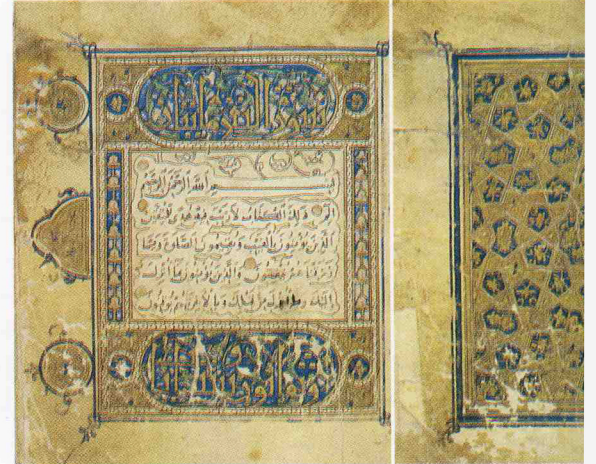 سورة البقرة مائتان
بسم الله الرحمن الرحيم
الم ذلك الكتاب لا ريب فيه هدى للمتقين
الذين يؤمنون بالغيب ويقيمون الصلوة ومما
رزقناهم ينفقون والذين يؤمنون بما أنزل
إليك وما أنزل من قبلك وبالآخرة هم يوقنون